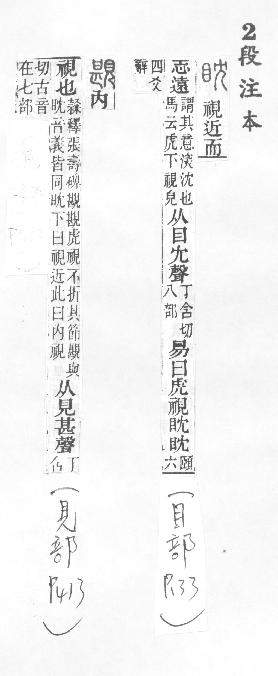 2 段注本
眈 視近而
志遠 謂其意深沈也 馬云虎下視皃 从目冘聲 丁含切 八部 易曰虎視眈眈 頤六四爻辭
(目部 P.133)
覘 内
視也 隸釋張壽碑覘覘虎視不折其節覘與眈音義皆同眈下曰視近此曰内視 从見甚聲 丁含切古音在七部
(見部 P.413)